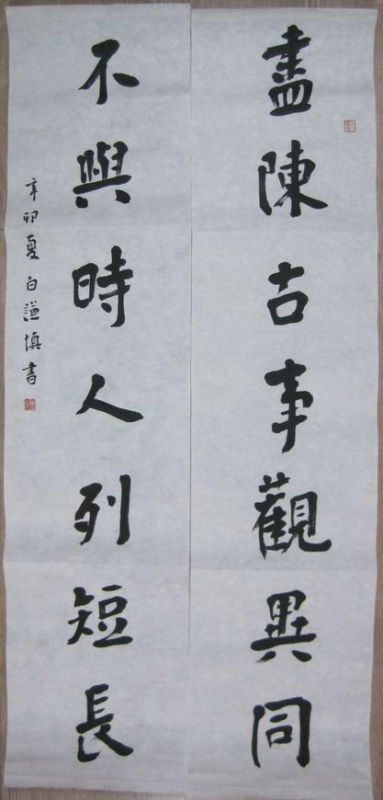 盡陳古事觀異同
不與時人列短長
辛卯夏白謙慎書